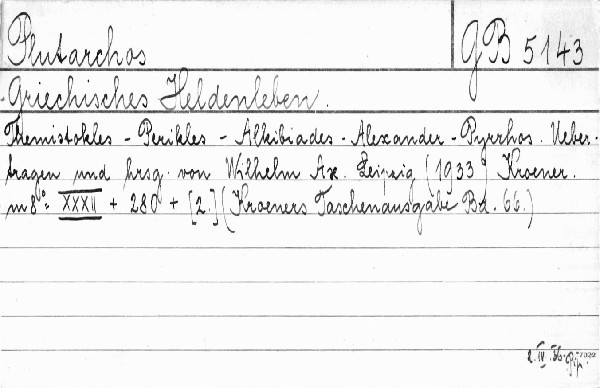 Plutarchos
GB 5143
Griechisches Heldenleben.
Themistokles - Perikles - Alkibiades - Alexander - Pyrrhos. Ueber-
tragen und hrsg. von Wilhelm Ax. Leipzig (1933) Kroener.
m8°: XXXII + 280 + [2.] (Kroeners Taschenausgabe Bd. 66.)
2. IV. 36.